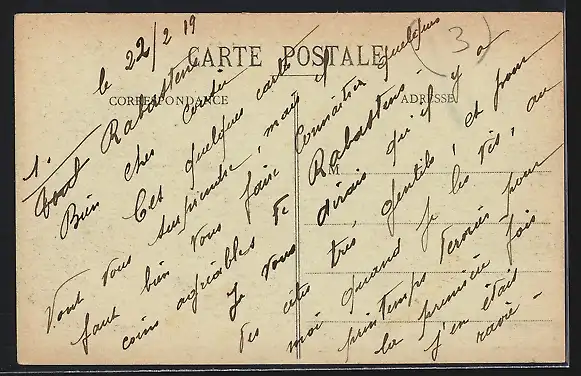 CARTE POSTALE
CORRESPONDANCE
ADRESSE
M
(3)
1.
le 22/2 19
Rabastens
Bien cher
Ces quelques cartes
Vont vous surprendre, mais il
faut bien vous faire Connaître quelques
coins agréables de Rabastens.
Je vous dirais qu'il y a
des côtés très gentils, et pour
moi quand je les vis, au
printemps dernier pour
la première fois
j'en étais
ravie -